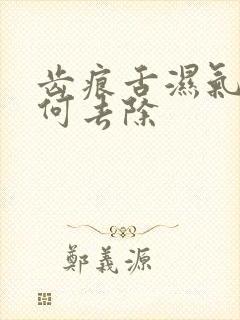 齿痕舌濕氣
何去除
鄭義源